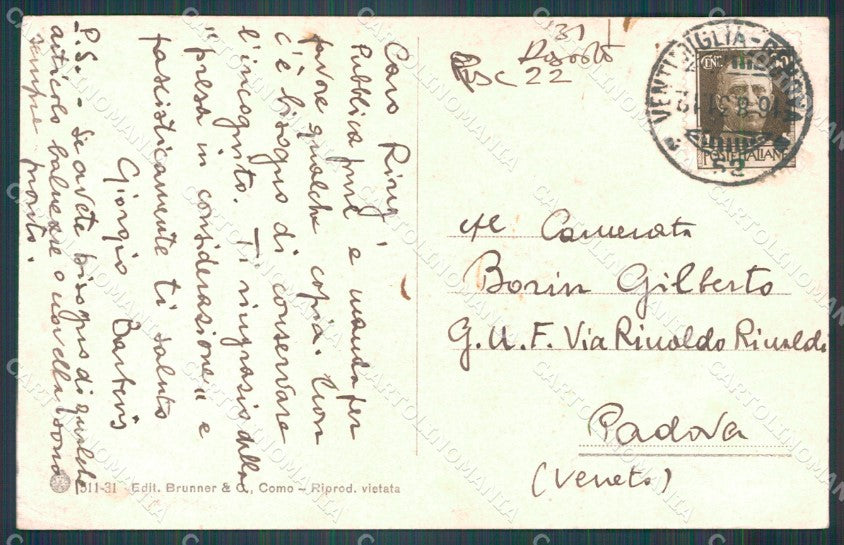 Caro Ring,
Pubblica pure e manda per
favore qualche copia. Non
c'è bisogno di conservare
l'incognito. Ti ringrazio della
"presa in considerazione" e
fascisticamente ti saluto
Giorgio
P.S. - Se avete bisogno di qualche
articolo balneare o novella sono
sempre pronto.
1511-31 - Edit. Brunner & C., Como - Riprod. vietata
'31
22
VENTIMIGLIA-GENOVA
16·8·31
52
CENT
POSTE ITALIANE
Al Camerata
Borin Gilberto
G.U.F. Via Rinaldo Rinaldi
Padova
(Veneto)
CARTOLINOMANIA